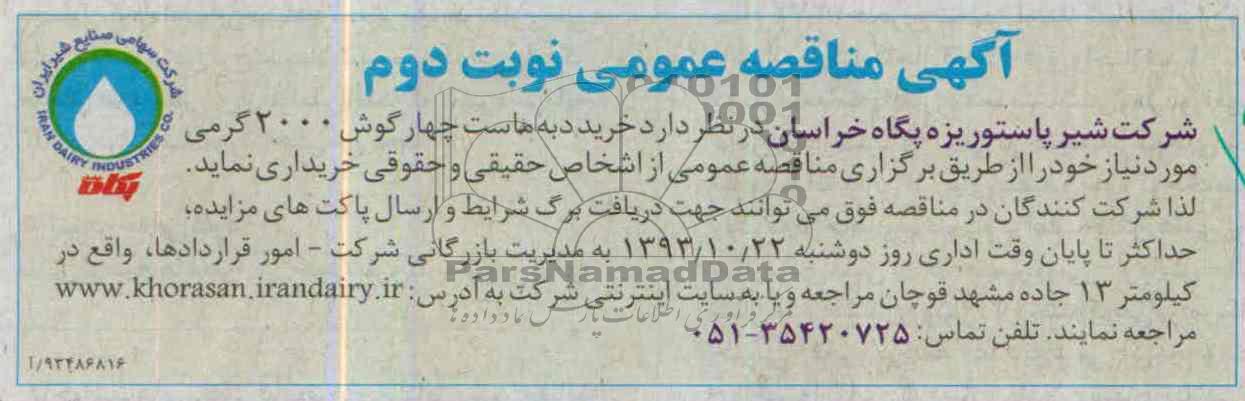 آگهی مناقصه عمومی نوبت دوم
شرکت شیر پاستوریزه پگاه خراسان در نظر دارد خرید دبه ماست چهار گوش ۲۰۰۰ گرمی
مورد نیاز خود را از طریق برگزاری مناقصه عمومی از اشخاص حقیقی و حقوقی خریداری نماید.
لذا شرکت کنندگان در مناقصه فوق می توانند جهت دریافت برگ شرایط و ارسال پاکت های مزایده؛
حداکثر تا پایان وقت اداری روز دوشنبه ۱۳۹۳/۱۰/۲۲ به مدیریت بازرگانی شرکت - امور قراردادها، واقع در
کیلومتر ۱۳ جاده مشهد قوچان مراجعه و یا به سایت اینترنتی شرکت به آدرس: www.khorasan.irandairy.ir
مراجعه نمایند. تلفن تماس: ۳۵۴۲۰۷۲۵-۰۵۱
۹۳۴۸۶۸۱۶/آ
شرکت سهامی صنایع شیر ایران
IRAN DAIRY INDUSTRIES CO.
پگاه
ParsNamadData